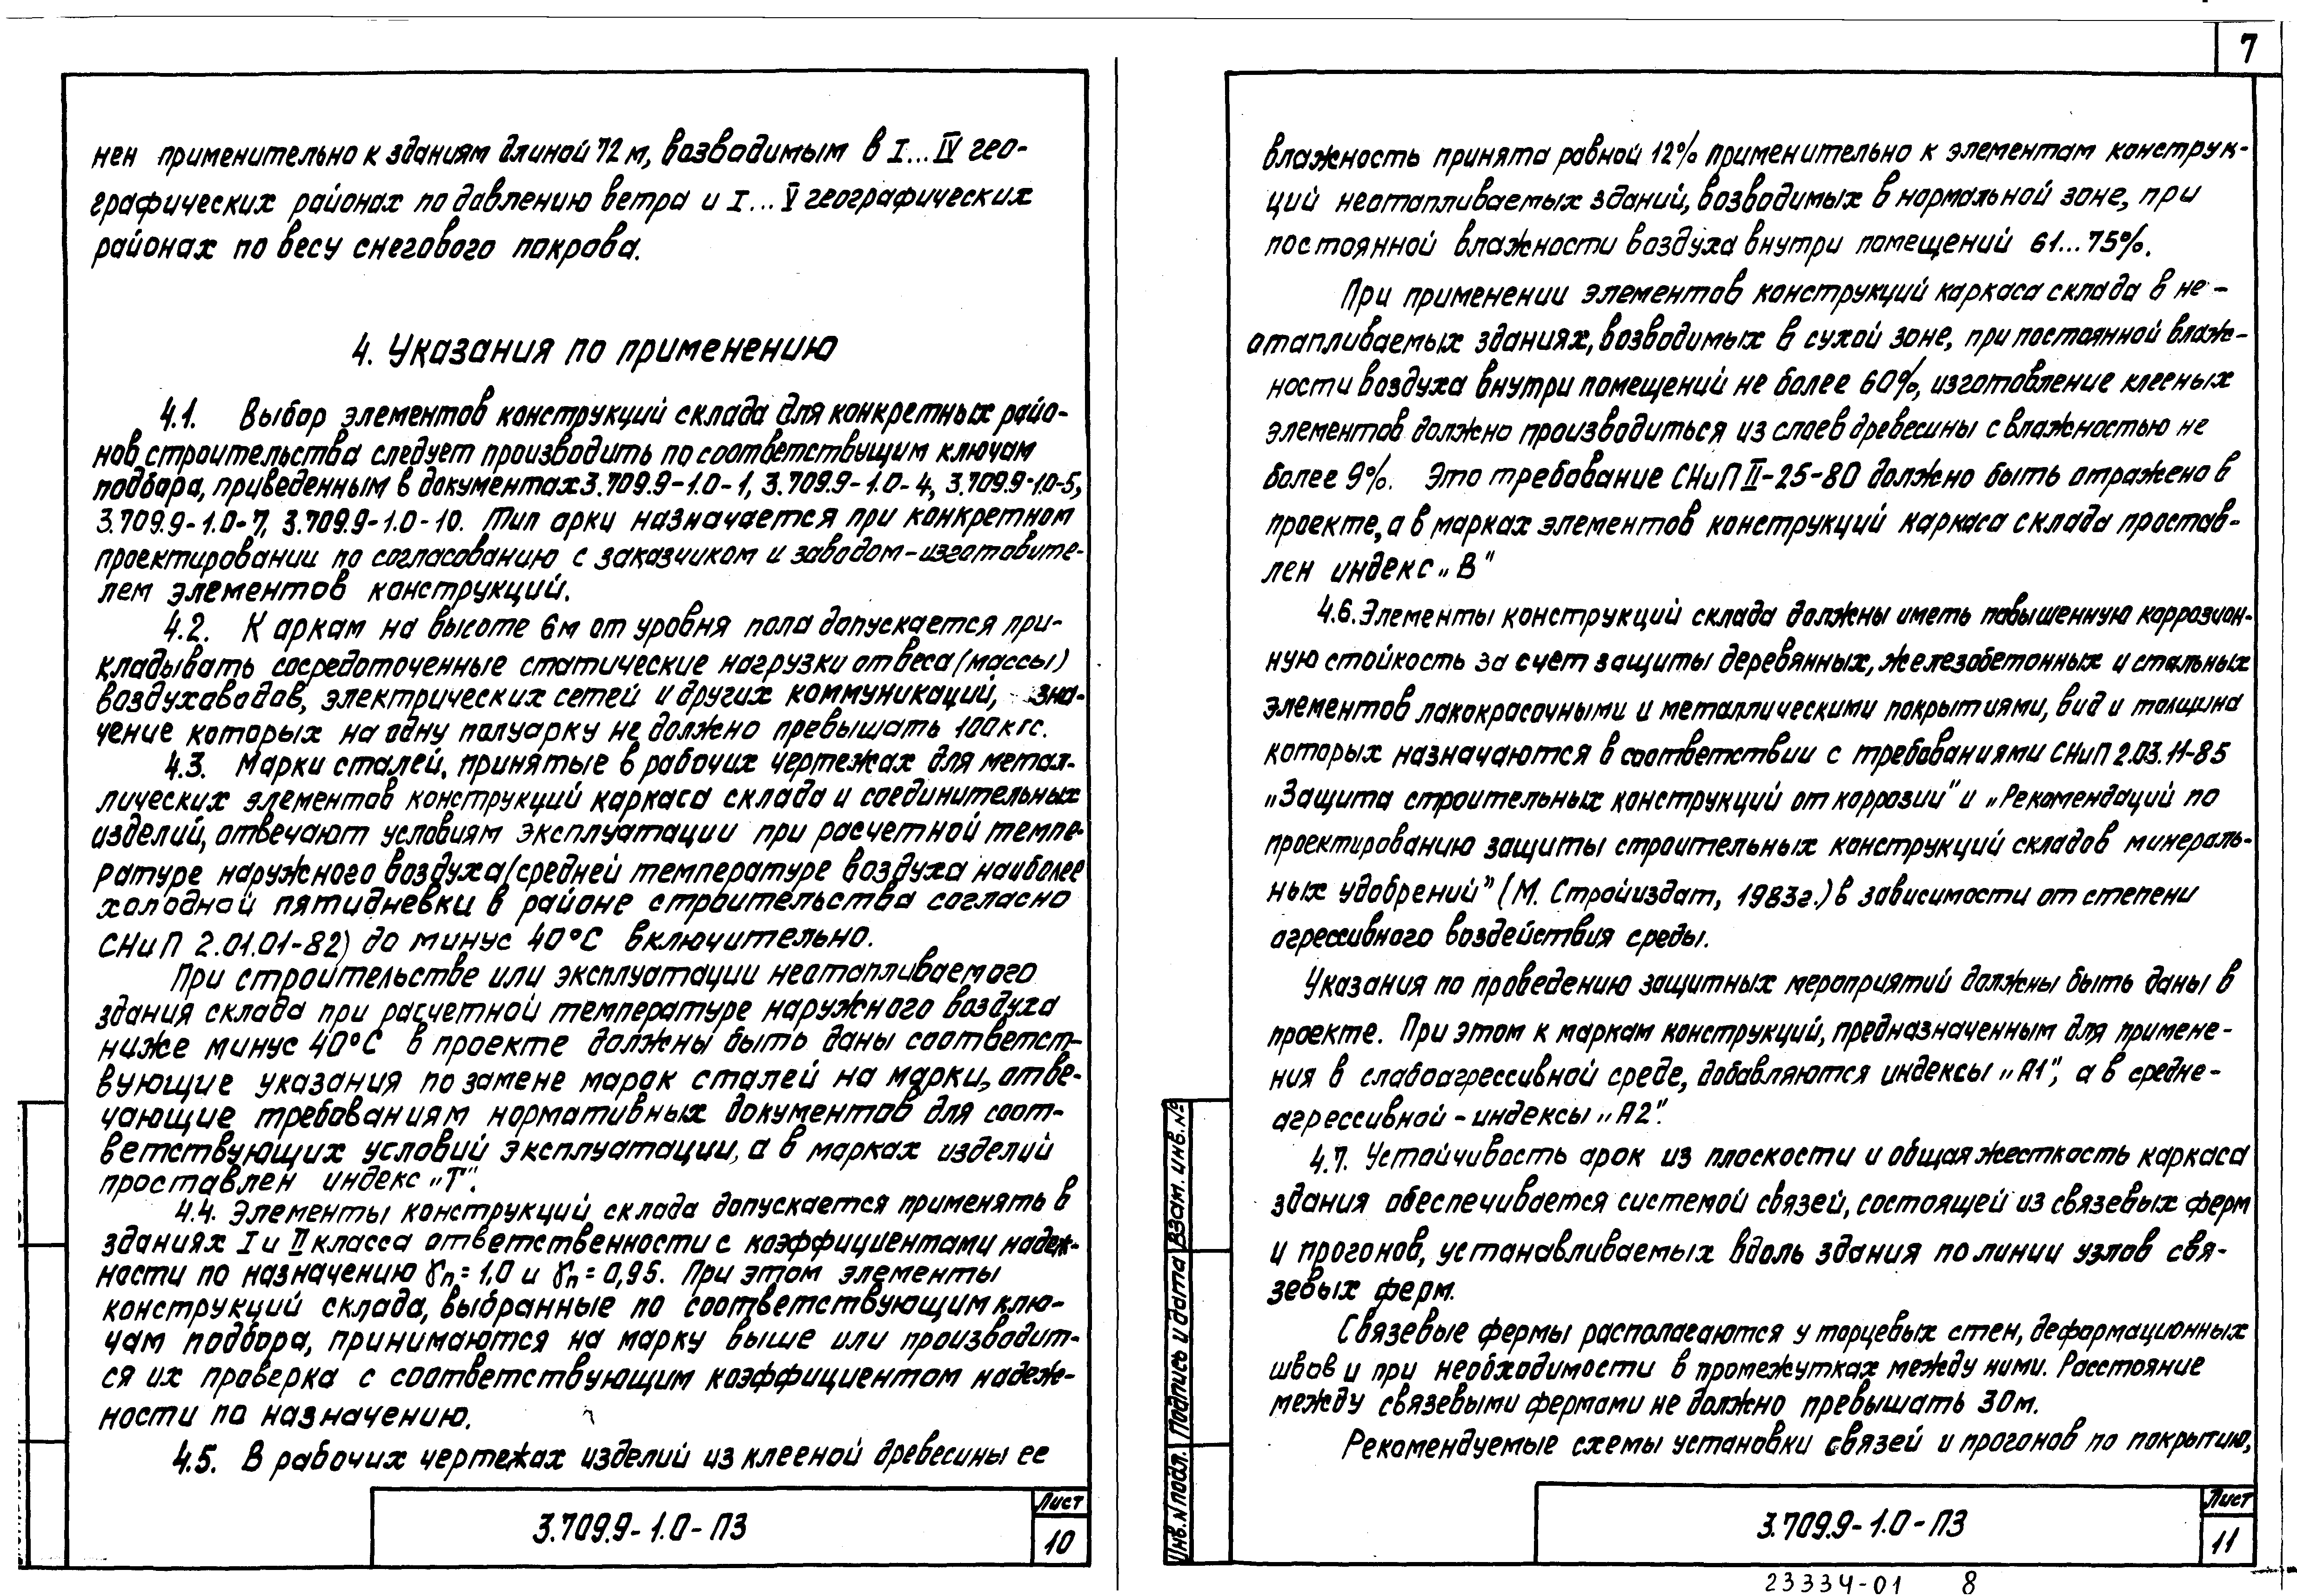 7
нен применительно к зданиям длиной 72 м, возводимым в I...IV гео-
графических районах по давлению ветра и I...V географических
районах по весу снегового покрова.
4. Указания по применению
4.1. Выбор элементов конструкций склада для конкретных райо-
нов строительства следует производить по соответствущим ключам
подбора, приведенным в документах 3.709.9-1.0-1, 3.709.9-1.0-4, 3.709.9-1.0-5,
3.709.9-1.0-7, 3.709.9-1.0-10. Тип арки назначается при конкретном
проектировании по согласованию с заказчиком и заводом-изготовите-
лем элементов конструкций.
4.2. К аркам на высоте 6м от уровня пола допускается при-
кладывать сосредоточенные статические нагрузки от веса (массы)
воздуховодов, электрических сетей и других коммуникаций, зна-
чение которых на одну полуарку не должно превышать 100кгс.
4.3. Марки сталей, принятые в рабочих чертежах для метал-
лических элементов конструкций каркаса склада и соединительных
изделий, отвечают условиям эксплуатации при расчетной темпе-
ратуре наружного воздуха (средней температуре воздуха наиболее
холодной пятидневки в районе строительства согласно
СНиП 2.01.01-82) до минус 40°С включительно.
При строительстве или эксплуатации неотапливаемого
здания склада при расчетной температуре наружного воздуха
ниже минус 40°С в проекте должны быть даны соответст-
вующие указания по замене марок сталей на марки, отве-
чающие требованиям нормативных документов для соот-
ветствующих условий эксплуатации, а в марках изделий
проставлен индекс „Т".
4.4. Элементы конструкций склада допускается применять в
зданиях I и II класса ответственности с коэффициентами надеж-
ности по назначению γn = 1,0 и γn = 0,95. При этом элементы
конструкций склада, выбранные по соответствующим клю-
чам подбора, принимаются на марку выше или производит-
ся их проверка с соответствующим коэффициентом надеж-
ности по назначению.
4.5. В рабочих чертежах изделий из клееной древесины ее
3.709.9-1.0-ПЗ
Лист
10
влажность принята равной 12% применительно к элементам конструк-
ций неотапливаемых зданий, возводимых в нормальной зоне, при
постоянной влажности воздуха внутри помещений 61...75%.
При применении элементов конструкций каркаса склада в не-
отапливаемых зданиях, возводимых в сухой зоне, при постоянной влаж-
ности воздуха внутри помещений не более 60%, изготовление клееных
элементов должно производиться из слоев древесины с влажностью не
более 9%. Это требование СНиП II-25-80 должно быть отражено в
проекте, а в марках элементов конструкций каркаса склада простав-
лен индекс „В"
4.6. Элементы конструкций склада должны иметь повышенную коррозион-
ную стойкость за счет защиты деревянных, железобетонных и стальных
элементов лакокрасочными и металлическими покрытиями, вид и толщина
которых назначаются в соответствии с требованиями СНиП 2.03.11-85
„Защита строительных конструкций от коррозии" и „Рекомендаций по
проектированию защиты строительных конструкций складов минераль-
ных удобрений" (М. Стройиздат, 1983г.) в зависимости от степени
агрессивного воздействия среды.
Указания по проведению защитных мероприятий должны быть даны в
проекте. При этом к маркам конструкций, предназначенным для примене-
ния в слабоагрессивной среде, добавляются индексы „А1", а в средне-
агрессивной - индексы „А2".
4.7. Устойчивость арок из плоскости и общая жесткость каркаса
здания обеспечивается системой связей, состоящей из связевых ферм
и прогонов, устанавливаемых вдоль здания по линии узлов свя-
зевых ферм.
Связевые фермы располагаются у торцевых стен, деформационных
швов и при необходимости в промежутках между ними. Расстояние
между связевыми фермами не должно превышать 30м.
Рекомендуемые схемы установки связей и прогонов по покрытию,
Взам. инв.№
Подпись и дата
Инв.№ подл.
3.709.9-1.0-ПЗ
Лист
11
23334-01 8